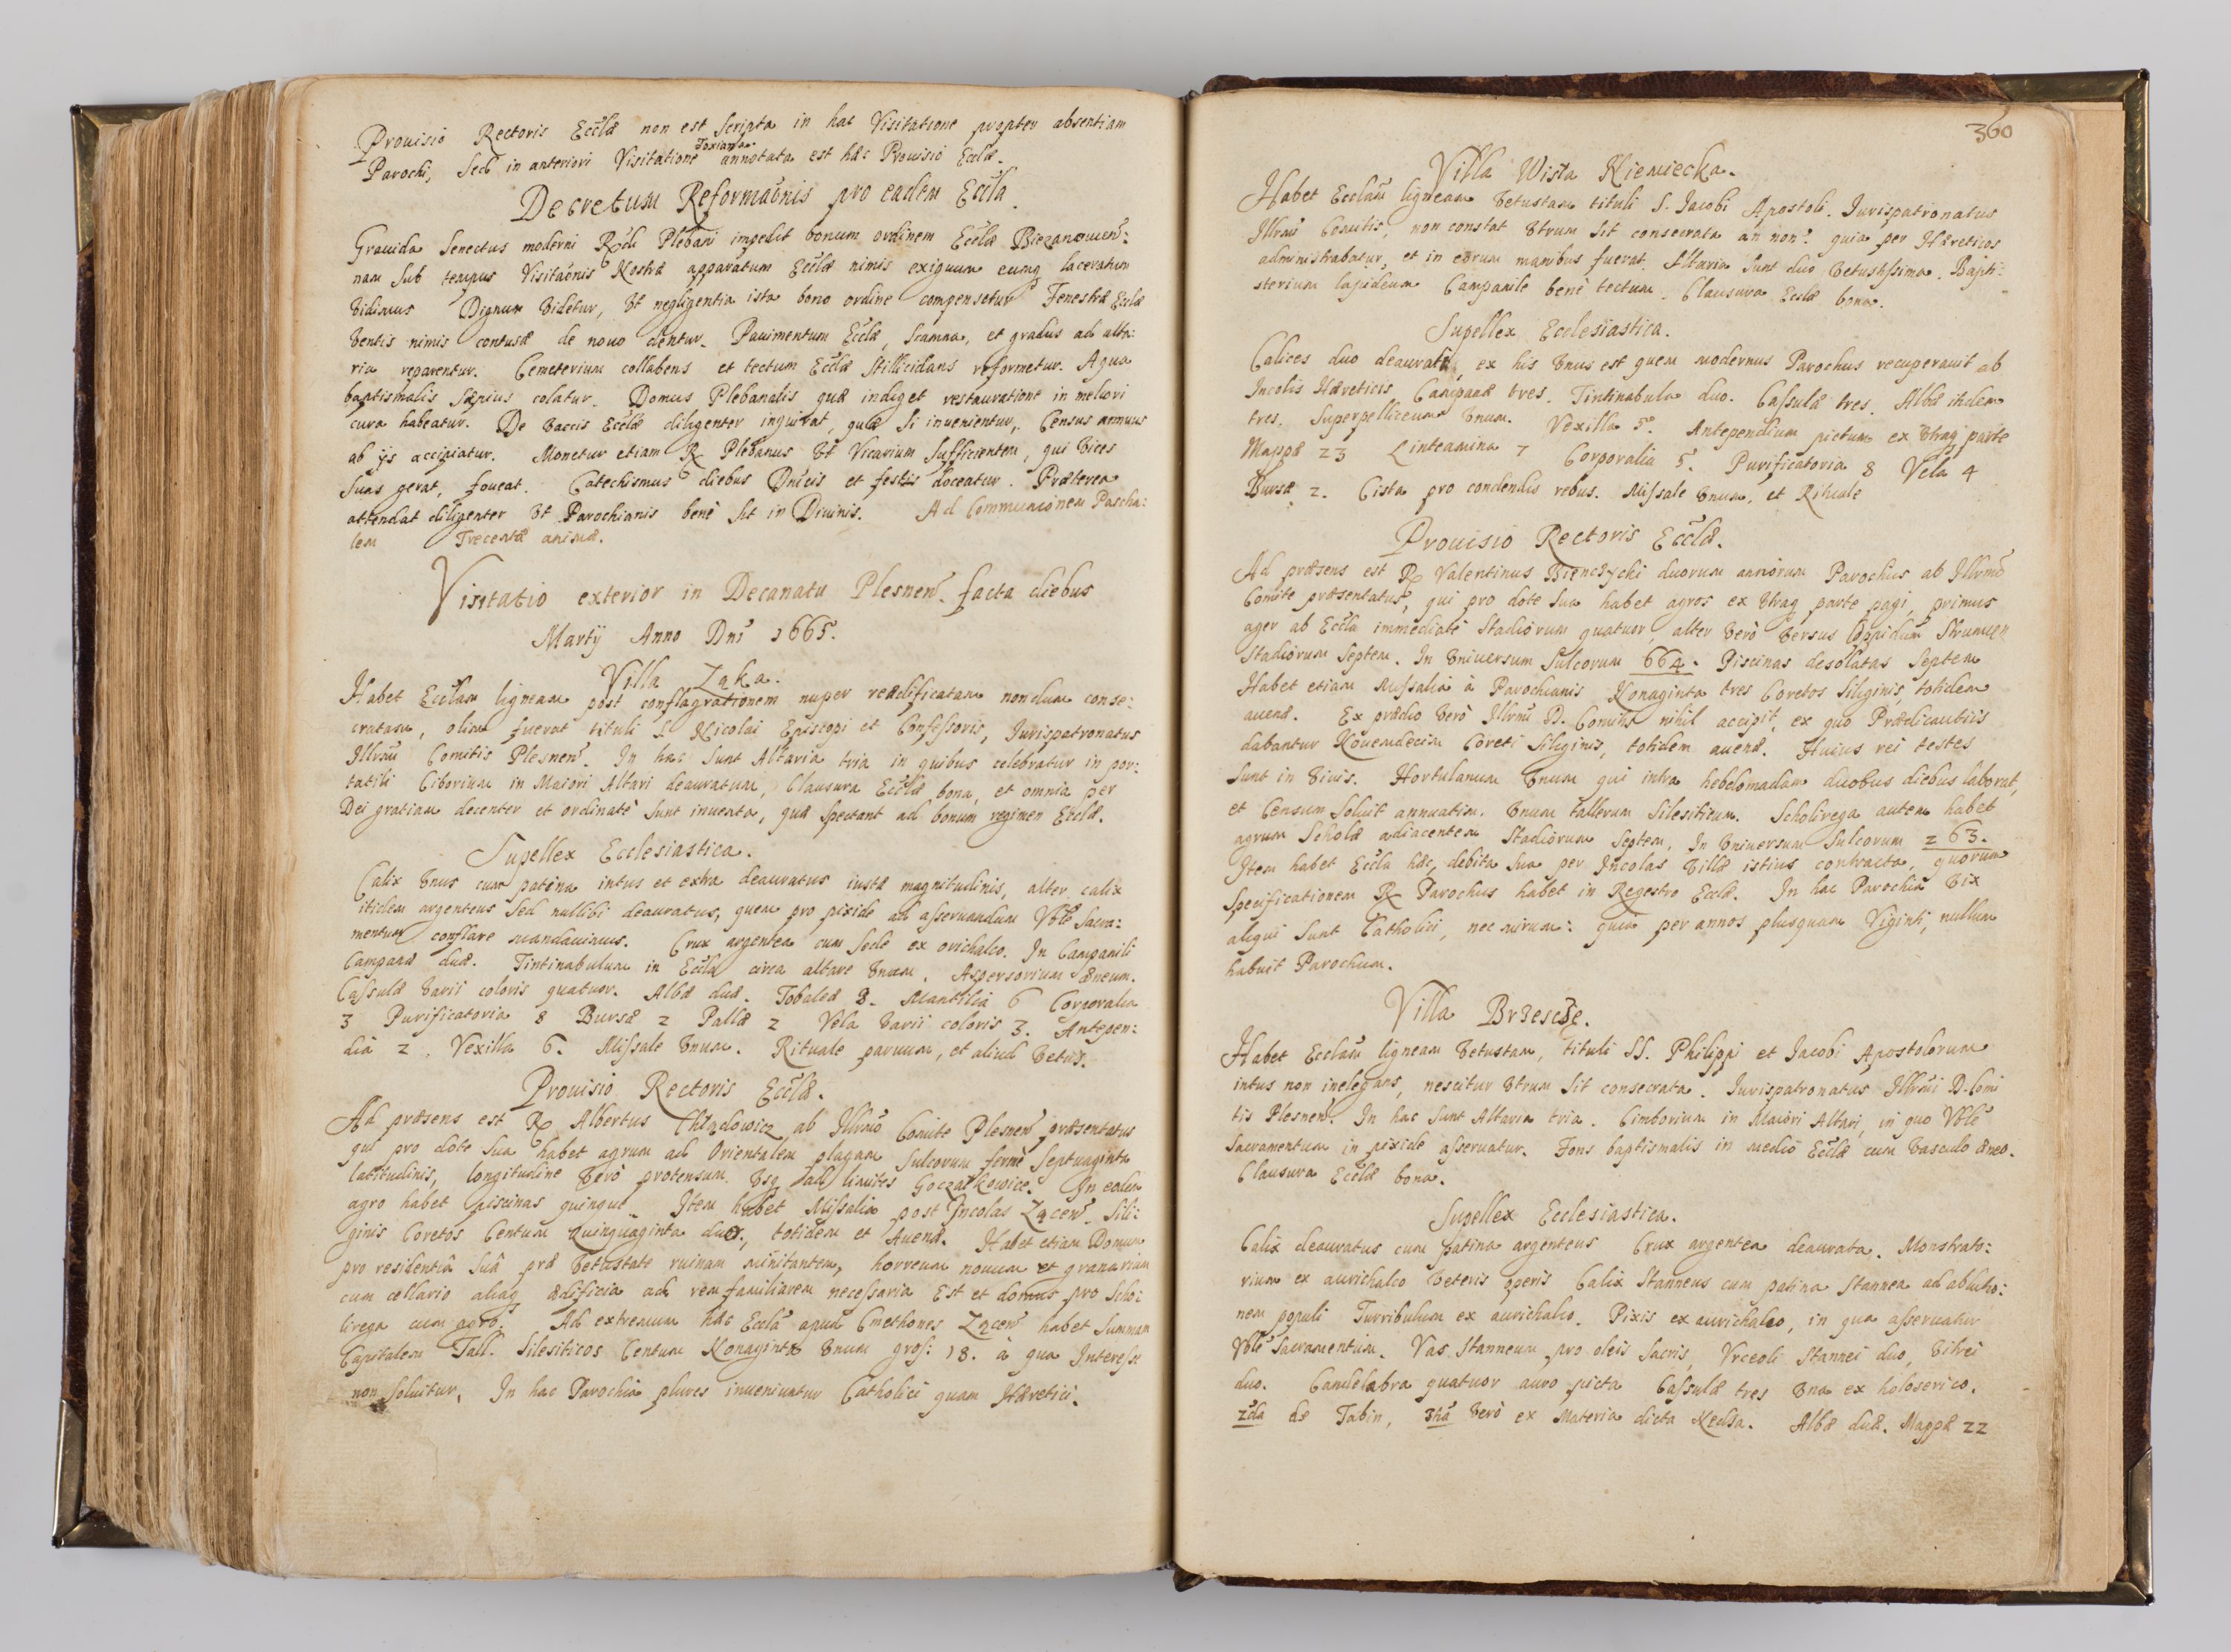 Prouisio Rectoris Eccłæ non est scripta in hac Visitatione propter absentiam
Parochi, sed in anteriori Visitatione Foxiana annotata est hæc Prouisio Eccłæ.
Decretum Reformaõnis pro eadem Eccła.
Grauida senectus moderni Rñdi Plebani impedit bonum ordinem Eccłæ Biezanouien:
nam sub tempus Visitaõnis Nostræ apparatum Eccłæ nimis exiguum eumq laceratum
vidimus Dignum videtur, vt negligentia ista bono ordine compensetur Fenestræ Eccłæ
ventis nimis contusæ de nouo dentur. Pauimentum Eccłæ, scamna, et gradus ad alta:
ria reparentur. Cemeterium collabens et tectum Eccłæ stillicidans reformetur. Aqua
baptismalis sæpius colatur. Domus Plebanalis quæ indiget restauratione in meliori
cura habeatur. De vaccis Eccłæ diligenter inquirat, quæ si inuenientur, Census annuus
ab ijs accipiatur. Monetur etiam R Plebanus vt Vicarium sufficientem, qui vices
suas gerat, foueat. Catechismus diebus Dnicis et festis doceatur. Præterea
attendat diligenter vt Parochianis benè sit in Diuinis. Ad Communionem Pascha:
lem Trecentæ animæ.
Visitatio exterior in Decanatu Plesnen. facta diebus
Martij Anno Dni 1665.
Villa Ząka.
Habet Eccłam ligneam post conflagrationem nuper reædificatam nondum conse:
cratam, olim fuerat tituli S Nicolai Episcopi et Confessoris, Jurispatronatus
Illrmi Comitis Plesnen. In hac sunt Altaria tria in quibus celebratur in por:
tatili Ciborium in Maiori Altari deauratum, Clausura Eccłæ bona, et omnia per
Dei gratiam decenter et ordinatè sunt inuenta, quæ spectant ad bonum regimen Eccłæ.
Supellex Ecclesiastica.
Calix vnus cum patena intus et extra deauratus iustæ magnitudinis, alter calix
itidem argenteus sed nullibi deauratus, quem pro pixide ad asseruandum Vble Sacra:
mentum conflare mandauimus. Crux argentea cum sede ex orichalco. In Campanili
Campanæ duæ. Tintinabulum in Eccła circa altare vnum. Aspersorium æneum.
Cassulæ varii coloris quatuor. Albæ duæ. Tobaleæ 8. Mantilia 6 Corporalia
3 Purificatoria 8 Bursæ 2 Pallæ 2 Vela varii coloris 3. Antepen:
dia 2. Vexilla 6. Missale vnum. Rituale paruum, et aliud vetus.
Prouisio Rectoris Eccłæ.
Ad præsens est R Albertus Chlądowicz ab Illrmo Comite Plesnen præsentatus
qui pro dote sua habet agrum ad Orientalem plagam sulcorum fermè septuaginta
latitudinis, longitudine verò protensum vsq ad limites Goczałkowice. In eodem
agro habet piscinas quinque Item habet Missalia post Incolas Zącen. Sili:
ginis Coretos Centum Quinquaginta duos, totidem et Auenæ. Habet etiam Domum
pro residentia suâ præ vetustate ruinam minitantem, horreum nouum et granarium
cum cellario aliaq ædificia ad rem familiarem necessaria Est et domus pro Scho:
lirega cum agro. Ad extremum hæc Eccła apud Cmethones Zącen habet summam
Capitalem Tall. Silesiticos Centum Nonaginta vnum gros: 18. à qua Interesse
non soluitur. In hac Parochia plures inueniuntur Catholici quam Hæretici.
360
Villa Wisła Niemiecka.
Habet Eccłam ligneam vetustam tituli S. Jacobi Apostoli. Jurispatronatus
Illrmi Comitis, non constat vtrum sit consecrata an non? quia per Hæreticos
administrabatur, et in eorum manibus fuerat. Altaria sunt duo vetustissima. Bapti:
sterium lapideum Campanile benè tectum. Clausura Eccłæ bona.
Supellex Ecclesiastica.
Calices duo deaurati, ex his vnus est quem modernus Parochus recuperauit ab
Incolis Hæreticis. Campanæ tres. Tintinabula duo. Cassulæ tres. Albæ itidem
tres. Superpelliceum vnum. Vexilla 5. Antependium pictum ex vtraq parte
Mappæ 23 Linteamina 7 Corporalia 5. Purificatoria 8 Vela 4
Bursæ 2. Cista pro condendis rebus. Missale vnum, et Rituale
Prouisio Rectoris Eccłæ.
Ad præsens est R Valentinus Bienczycki duorum annorum Parochus ab Illrmo
Comite præsentatus, qui pro dote sua habet agros ex vtraq parte pagi, primus
ager ab Eccła immediatè stadiorum quatuor, alter verò versus Oppidum Strumien
Stadiorum septem. In vniversum sulcorum 664. Piscinas desolatas septem
Habet etiam Missalia à Parochianis Nonaginta tres Coretos siliginis, totidem
auenæ. Ex prædio verò Illrmi D. Comitis nihil accipit, ex quo Prædicantiis
dabantur Nouemdecim Coreti siliginis, totidem auenæ. Huius rei testes
sunt in viuis. Hortulanum vnum qui intra hebdomadam duobus diebus laborat,
et Censum soluit annuatim. vnum tallerum Silesiticum. Scholirega autem habet
agrum scholæ adiacentem stadiorum septem, In vniversum sulcorum 263.
Item habet Eccła hæc, debita sua per Incolas Villæ istius contracta, quorum
specificationem R Parochus habet in Regestro Eccłæ. In hac Parochia vix
aliqui sunt Catholici, nec mirum: quia per annos plusquam Viginti, nullum
habuit Parochum.
Villa Brzescze.
Habet Eccłam ligneam vetustam, tituli SS. Philippi et Jacobi Apostolorum
intus non inelegans, nescitur vtrum sit consecrata. Jurispatronatus Illrmi D. Comi
tis Plesnen. In hac sunt Altaria tria. Cimborium in Maiori Altari, in quo Vble
Sacramentum in pixide asseruatur. Fons baptismalis in medio Eccłæ cum vasculo æneo.
Clausura Eccłæ bona.
Supellex Ecclesiastica.
Calix deauratus cum patina argenteus Crux argentea deaurata. Monstrato:
rium ex aurichalco veteris operis Calix stanneus cum patina stannea ad ablutio:
nem populi Turribulum ex aurichalco. Pixis ex aurichalco, in qua asseruatur
Vble Sacramentum. Vas stanneum pro oleis sacris, Vrceoli stannei duo, vitrei
duo. Candelabra quatuor auro picta Cassulæ tres vna ex holoserico.
2da de Tabin, 3tia verò ex Materia dicta Kedsa. Albæ duæ. Mappæ 22